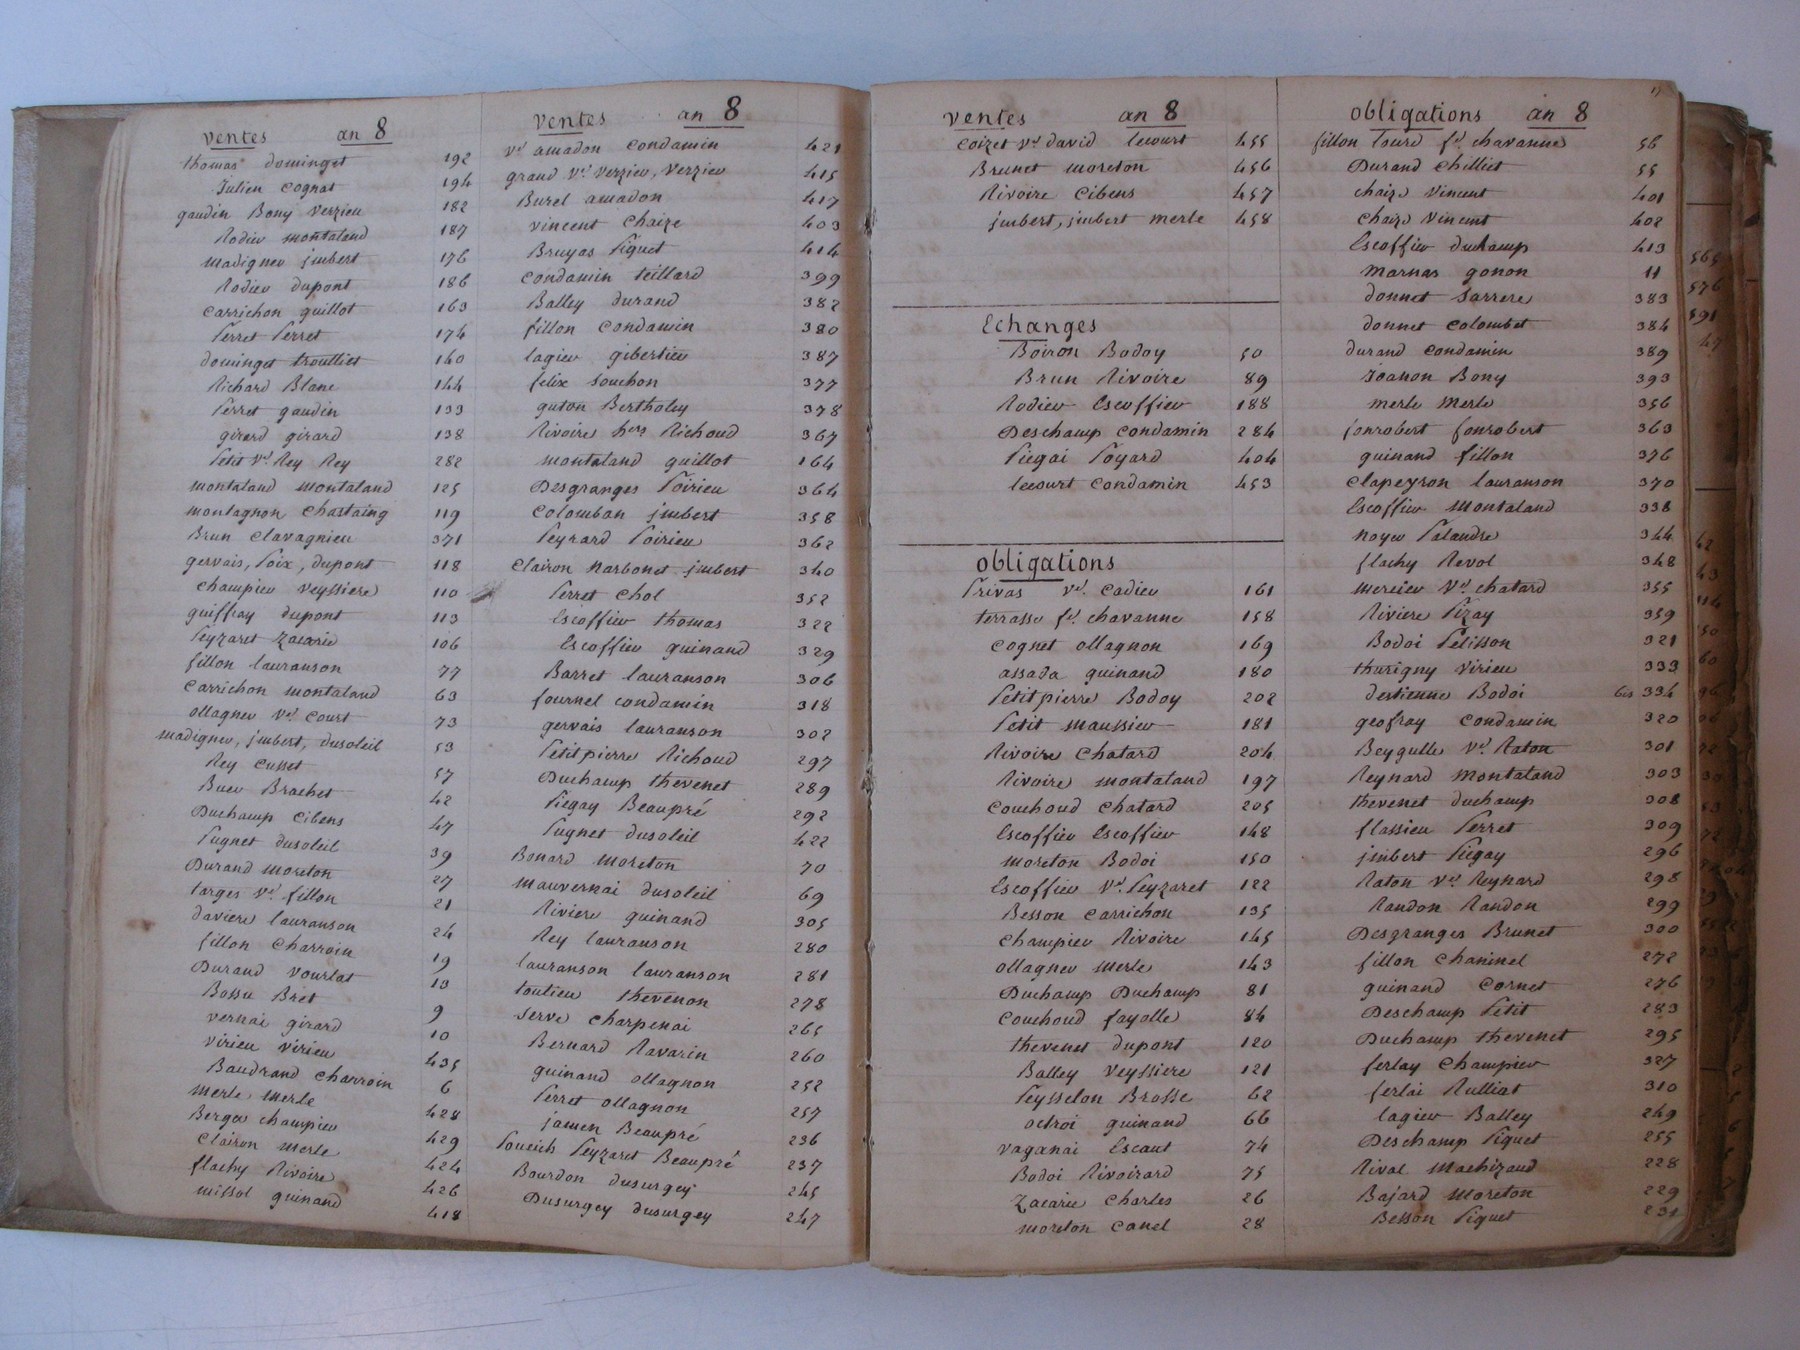 ventes an 8
thomas dominget 192
Julien cognat 194
gaudin Bony verzieu 182
Rodieu montaland 187
madignev jmbert 176
Rodieu dupont 186
carrichon guillot 163
Perret Perret 174
dominget troulliet 160
Richard Blanc 144
Perret gaudin 133
girard girard 138
Petit Ve Rey Rey 282
montaland montaland 125
montagnon chastaing 119
Brun clavagnieu 371
gervais, Poix, dupont 118
champieu veyssiere 110
guiffray dupont 113
Peyzaret zacarie 106
fillon lauranson 77
carrichon montaland 63
ollagnev ve court 73
madignev, jmbert, dusoleil 53
Rey cusset 57
Buev Brachet 42
Duchamp cibens 47
Pugnet dusoleil 39
Durand moreton 27
targes ve fillon 21
daviere lauranson 24
fillon charroin 19
Durand vourlat 13
Bossu Bret 9
vernai girard 10
virieu virieu 435
Baudrand charroin 6
merle merle 428
Berger champieu 429
clairon merle 424
flachy Rivoire 426
missol guinand 418
ventes an 8
ve amadon condamin 421
grand ve verzieu, verzieu 415
Burel amadon 417
vincent chaize 403
Bruyas Piguet 414
condamin teillard 399
Balley durand 382
fillon condamin 380
lagiev gibertiev 387
felix souchon 377
guton Bertholey 378
Rivoire hers Richoud 367
montaland guillot 164
Desgranges Poirieu 364
colomban jmbert 358
Peyrard Poirieu 362
clairon Narbonet jmbert 340
Perret chol 352
Escoffiev thomas 322
Escoffiev guinand 329
Barret lauranson 306
fournel condamin 318
gervais lauranson 302
Petitpierre Richoud 297
Duchamp thevenet 289
Piegay Beaupré 292
Pugnet dusoleil 422
Bonard moreton 70
mauvernai dusoleil 69
Riviere guinand 305
Rey lauranson 280
lauranson lauranson 281
toutieu thevenon 278
serve charpenai 265
Bernard Ravarin 260
guinand ollagnon 252
Perret ollagnon 257
jamen Beaupré 236
Poncich Peyzaret Beaupré 237
Bourdon dusurgey 245
Dusurgey dusurgey 247
ventes an 8
coizet ve david lecourt 455
Brunet moreton 456
Rivoire cibens 457
jmbert, jmbert merle 458
Echanges
Boiron Bodoy 50
Brun Rivoire 89
Rodiev Escoffiev 188
Deschamp condamin 284
Piegai Poyard 404
lecourt condamin 453
obligations
Privas ve cadieu 161
terrasse fd chavanne 158
cognet ollagnon 169
assada guinand 180
Petitpierre Bodoy 202
Petit maussiev 181
Rivoire chatard 204
Rivoire montaland 197
couchoud chatard 205
Escoffiev Escoffiev 148
moreton Bodoi 150
Escoffiev ve Peyzaret 122
Besson carrichon 135
champiev Rivoire 145
ollagnev merle 143
Duchamp Duchamp 81
couchoud fayolle 84
thevenet dupont 120
Balley veyssiere 121
Peysselon Brosse 62
octroi guinand 66
vaganai Escaut 74
Bodoi Rivoirard 75
Zacarie charles 26
moreton canel 28
obligations an 8
fillon Tourd fd chavanne 56
Durand chilliet 55
chaize vincent 401
chaize vincent 402
Escoffiev duchamp 413
marnas gonon 11
donnet sarrere 383
donnet colombet 384
durand condamin 389
Joanon Bony 393
merle merle 356
jonrobert jonrobert 363
guinand fillon 376
clapeyron lauranson 370
Escoffiev montaland 338
noyer Palandre 344
flachy Revol 348
merciev ve chatard 355
Riviere Pizay 359
Bodoi Pelisson 321
thurigny virieu 333
destienne Bodoi bis 334
geofray condamin 320
Beygulle ve Raton 301
Reynard montaland 303
thevenet duchamp 308
flassieu Perret 309
jmbert Piegay 296
Raton ve Reynard 298
Randon Randon 299
Desgranges Brunet 300
fillon chaninel 272
guinand cornet 276
Deschamp Petit 283
Duchamp thevenet 295
ferlay champiev 327
ferlai Rulliat 310
lagiev Balley 249
Deschamp Piguet 255
Rival machizaud 228
Bajard moreton 229
Besson Piguet 231
565
576
591
47